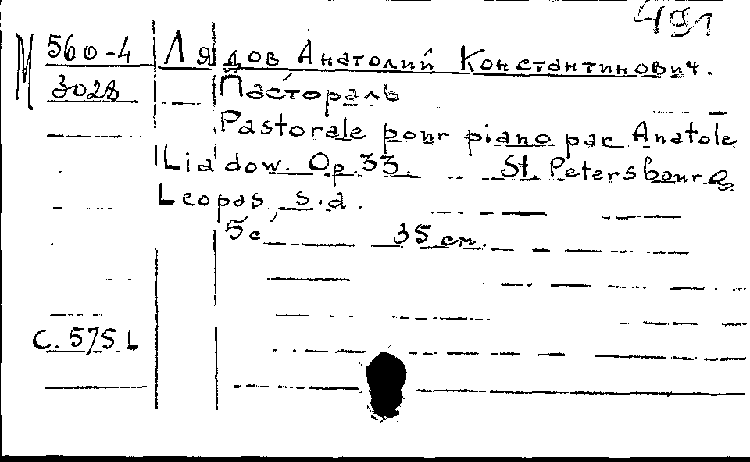 491
М 560-4 Лядов Анатолий Константинович.
3028 Пастораль
Pastorale pour piano par Anatole
Liadow. Op. 33. St. Petersbourg
Leopas, s.d.
5 с. 35 см.
C. 575 L